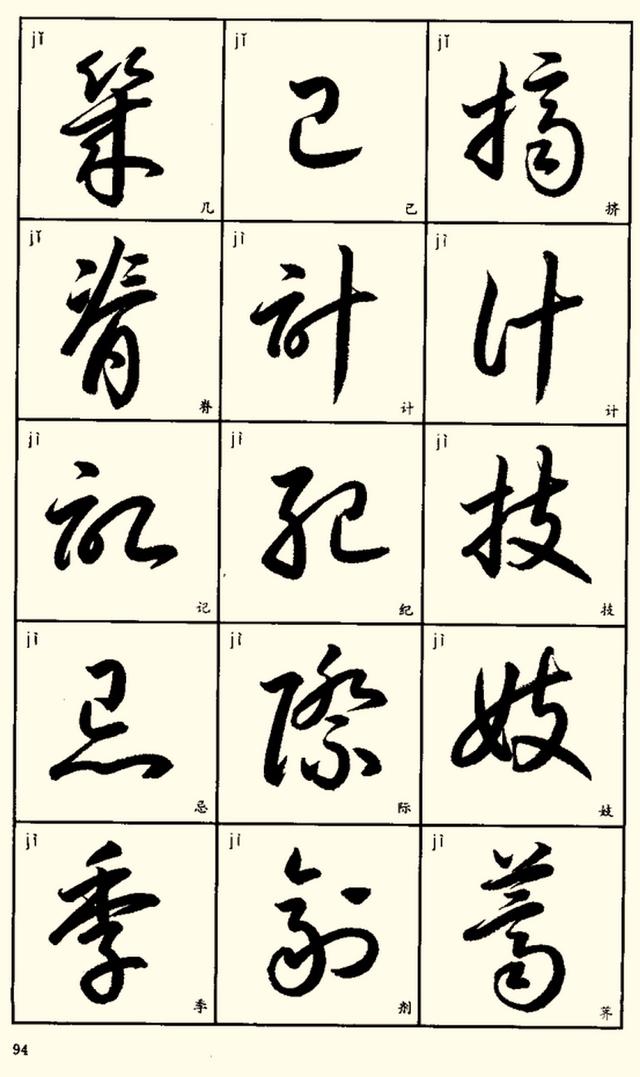 jǐ jǐ jǐ
几 己 挤
jǐ jì jì
脊 计 计
jì jì jì
记 纪 技
jì jì jì
忌 际 妓
jì jì jì
季 剂 荠
94